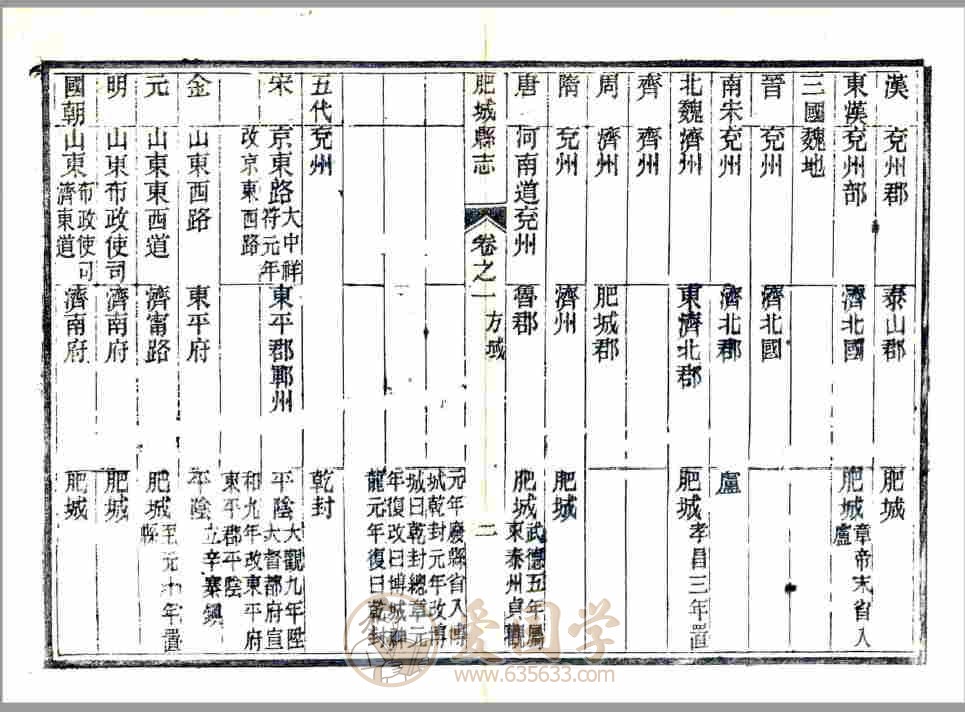 漢　兗州郡　泰山郡　肥城
東漢　兗州部　濟北國　肥城　章帝末省入盧
三國　魏地
晉　兗州　濟北國
南宋　兗州　濟北郡　盧
北魏　濟州　東濟北郡　肥城　孝昌三年置
齊　濟州
周　濟州　肥城郡
隋　兗州　濟州　肥城
唐　河南道兗州　魯郡　肥城　武德五年屬東泰州貞觀
肥城縣志　卷之一　方域　二
元年廢縣省入博城乾封元年改博城曰乾封總章元年復改曰博城神龍元年復曰乾封
五代　兗州　乾封
宋　京東路　大中祥符元年改京東西路　東平郡鄆州　平陰　大觀九年陞大督都府宣和九年改東平府東平郡平陰
金　山東西路　東平府　平陰　立辛寨鎮
元　山東東西道　濟甯路　肥城　至元十年置縣
明　山東布政使司　濟南府　肥城
國朝　山東　布政使司濟東道　濟南府　肥城
爱国学
www.635633.com